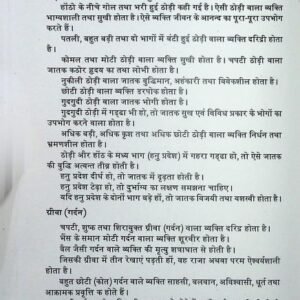 होंठो के नीचे गोल तथा भरी हुई ठोड़ी कही गई है। ऐसी ठोड़ी वाला व्यक्ति
भाग्यशाली तथा सुखी होता है। ऐसे व्यक्ति जीवन के आनन्द का पूरा-पूरा उपभोग
करते हैं।
पतली, बहुत बड़ी तथा दो भागों में बंटी हुई ठोड़ी वाला व्यक्ति दरिद्री होता
है।
कोमल तथा मोटी ठोड़ी वाला व्यक्ति सुखी होता है। चपटी ठोड़ी वाला
जातक कठोर हृदय का तथा लोभी होता है।
नुकीली ठोड़ी वाला जातक बुद्धिमान, अहंकारी तथा विवेकशील होता है।
छोटी ठोड़ी वाला व्यक्ति डरपोक होता है।
गुदगुदी ठोड़ी वाला जातक भोगी होता है।
गुदगुदी ठोड़ी में गड्ढा भी हो, तो जातक सुख एवं विविध प्रकार के भोगों का
उपभोग करने वाला होता है।
अधिक बड़ी, अधिक कृश तथा अधिक छोटी ठोड़ी वाला व्यक्ति निर्धन तथा
भ्रमणशील होता है।
ठोड़ी और होंठ के मध्य भाग (हनु प्रदेश) में गहरा गड्ढा हो, तो ऐसे जातक
की बुद्धि अत्यन्त तीव्र होती है।
हनु प्रदेश दीर्घ हो, तो जातक में दृढ़ता होती है।
हनु प्रदेश टेढ़ा हो, तो दुर्भाग्य का लक्षण समझना चाहिए।
यदि हनु प्रदेश के दोनों भाग बड़े हों, तो जातक विजयी तथा यशस्वी होता है।
ग्रीवा (गर्दन)
चपटी, शुष्क तथा शिरायुक्त ग्रीवा (गर्दन) वाला व्यक्ति दरिद्र होता है।
भैंस के समान मोटी गर्दन वाला व्यक्ति शूरवीर होता है।
बैल जैसी गर्दन वाले व्यक्ति की मृत्यु शस्त्राघात से होती है।
जिसकी ग्रीवा में तीन रेखाएं पड़ती हों, वह राजा अथवा परम ऐश्वर्यशाली
होता है।
बहुत छोटी (कोत) गर्दन वाले व्यक्ति साहसी, बलवान, अविश्वासी, धूर्त तथा
आक्रामक प्रवृत्ति के होते हैं।